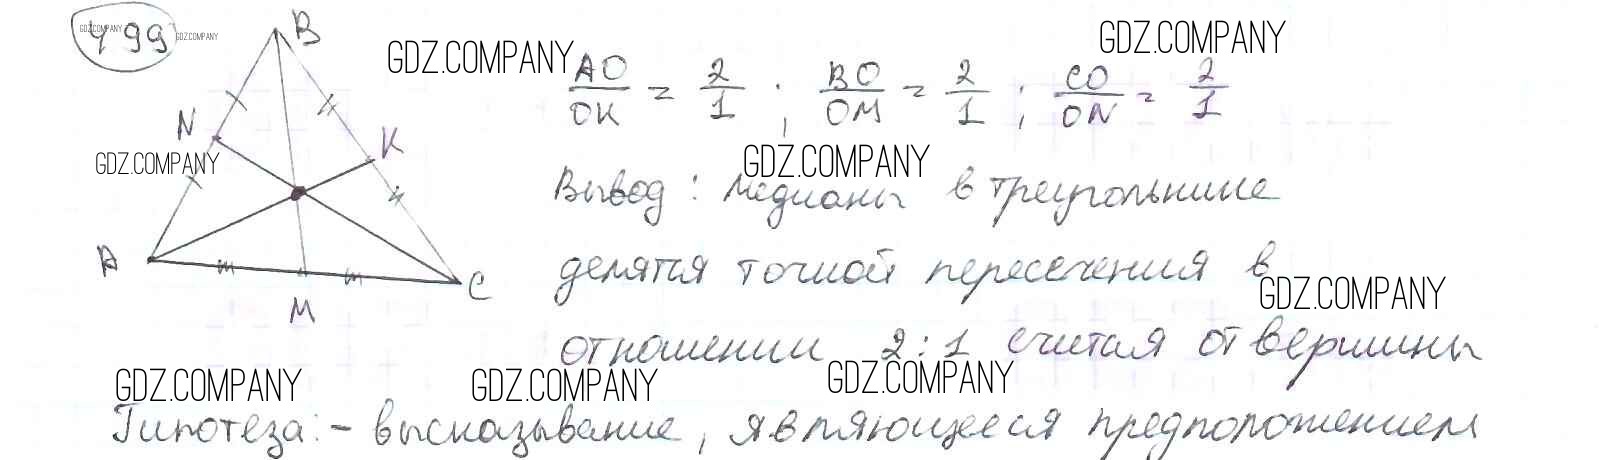 499
GDZ.COMPANY GDZ.COMPANY
B
GDZ.COMPANY GDZ.COMPANY
AO/OK = 2/1 ; BO/OM = 2/1 ; CO/ON = 2/1
N K
GDZ.COMPANY GDZ.COMPANY
Вывод: медианы в треугольнике
A
делятся точкой пересечения в
C
GDZ.COMPANY
M
отношении 2:1 считая от вершины
GDZ.COMPANY GDZ.COMPANY GDZ.COMPANY
Гипотеза: - высказывание, являющееся предположением